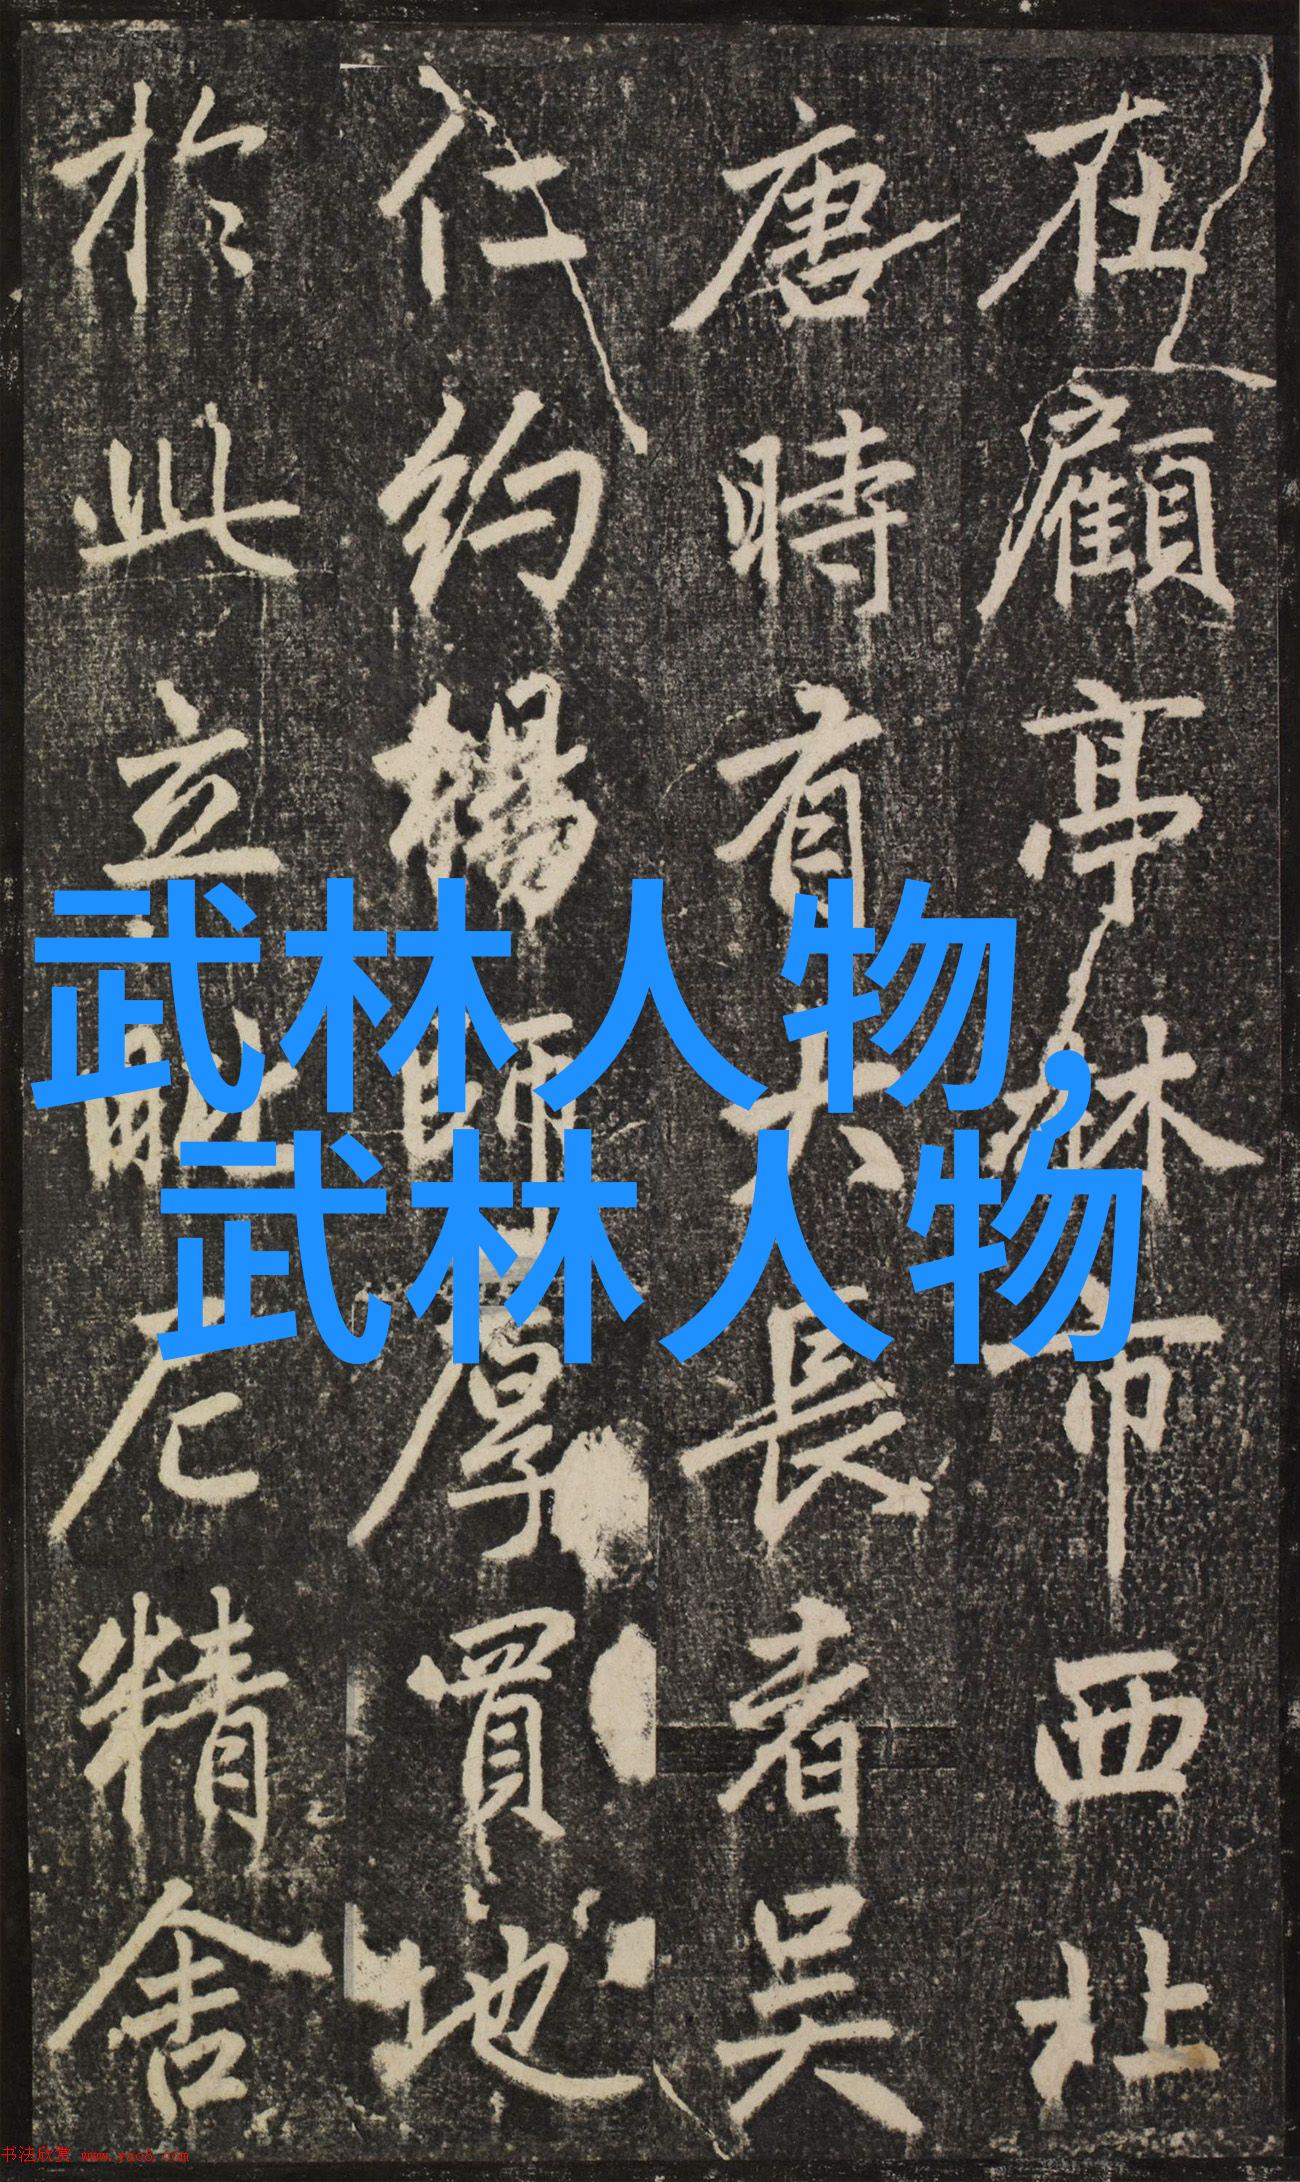 在顧亭林市西北
唐時有大長者吳
仁約楊師厚買地
於此立毗尼精舍
武林人物,
武林人物
书法欣赏 www.yac8.com